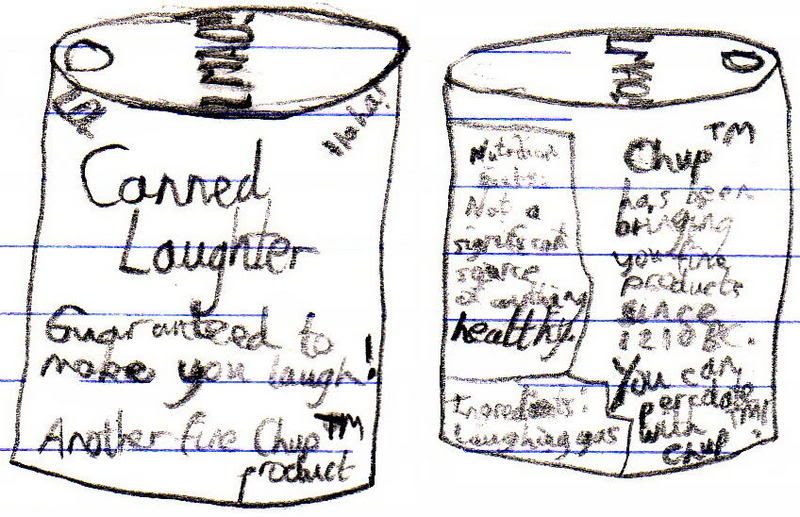 LMAO!
LOL
Haha!
Canned
Laughter
Guaranteed to
make you laugh!
Another fine Chup™
product
LMAO!
Nutrition
facts:
Not a
significant
source
of anything
healthy.
Ingredients:
Laughing gas
Chup™
has been
bringing
you fine
products
since
1210 BC.
You can
with
Chup™!